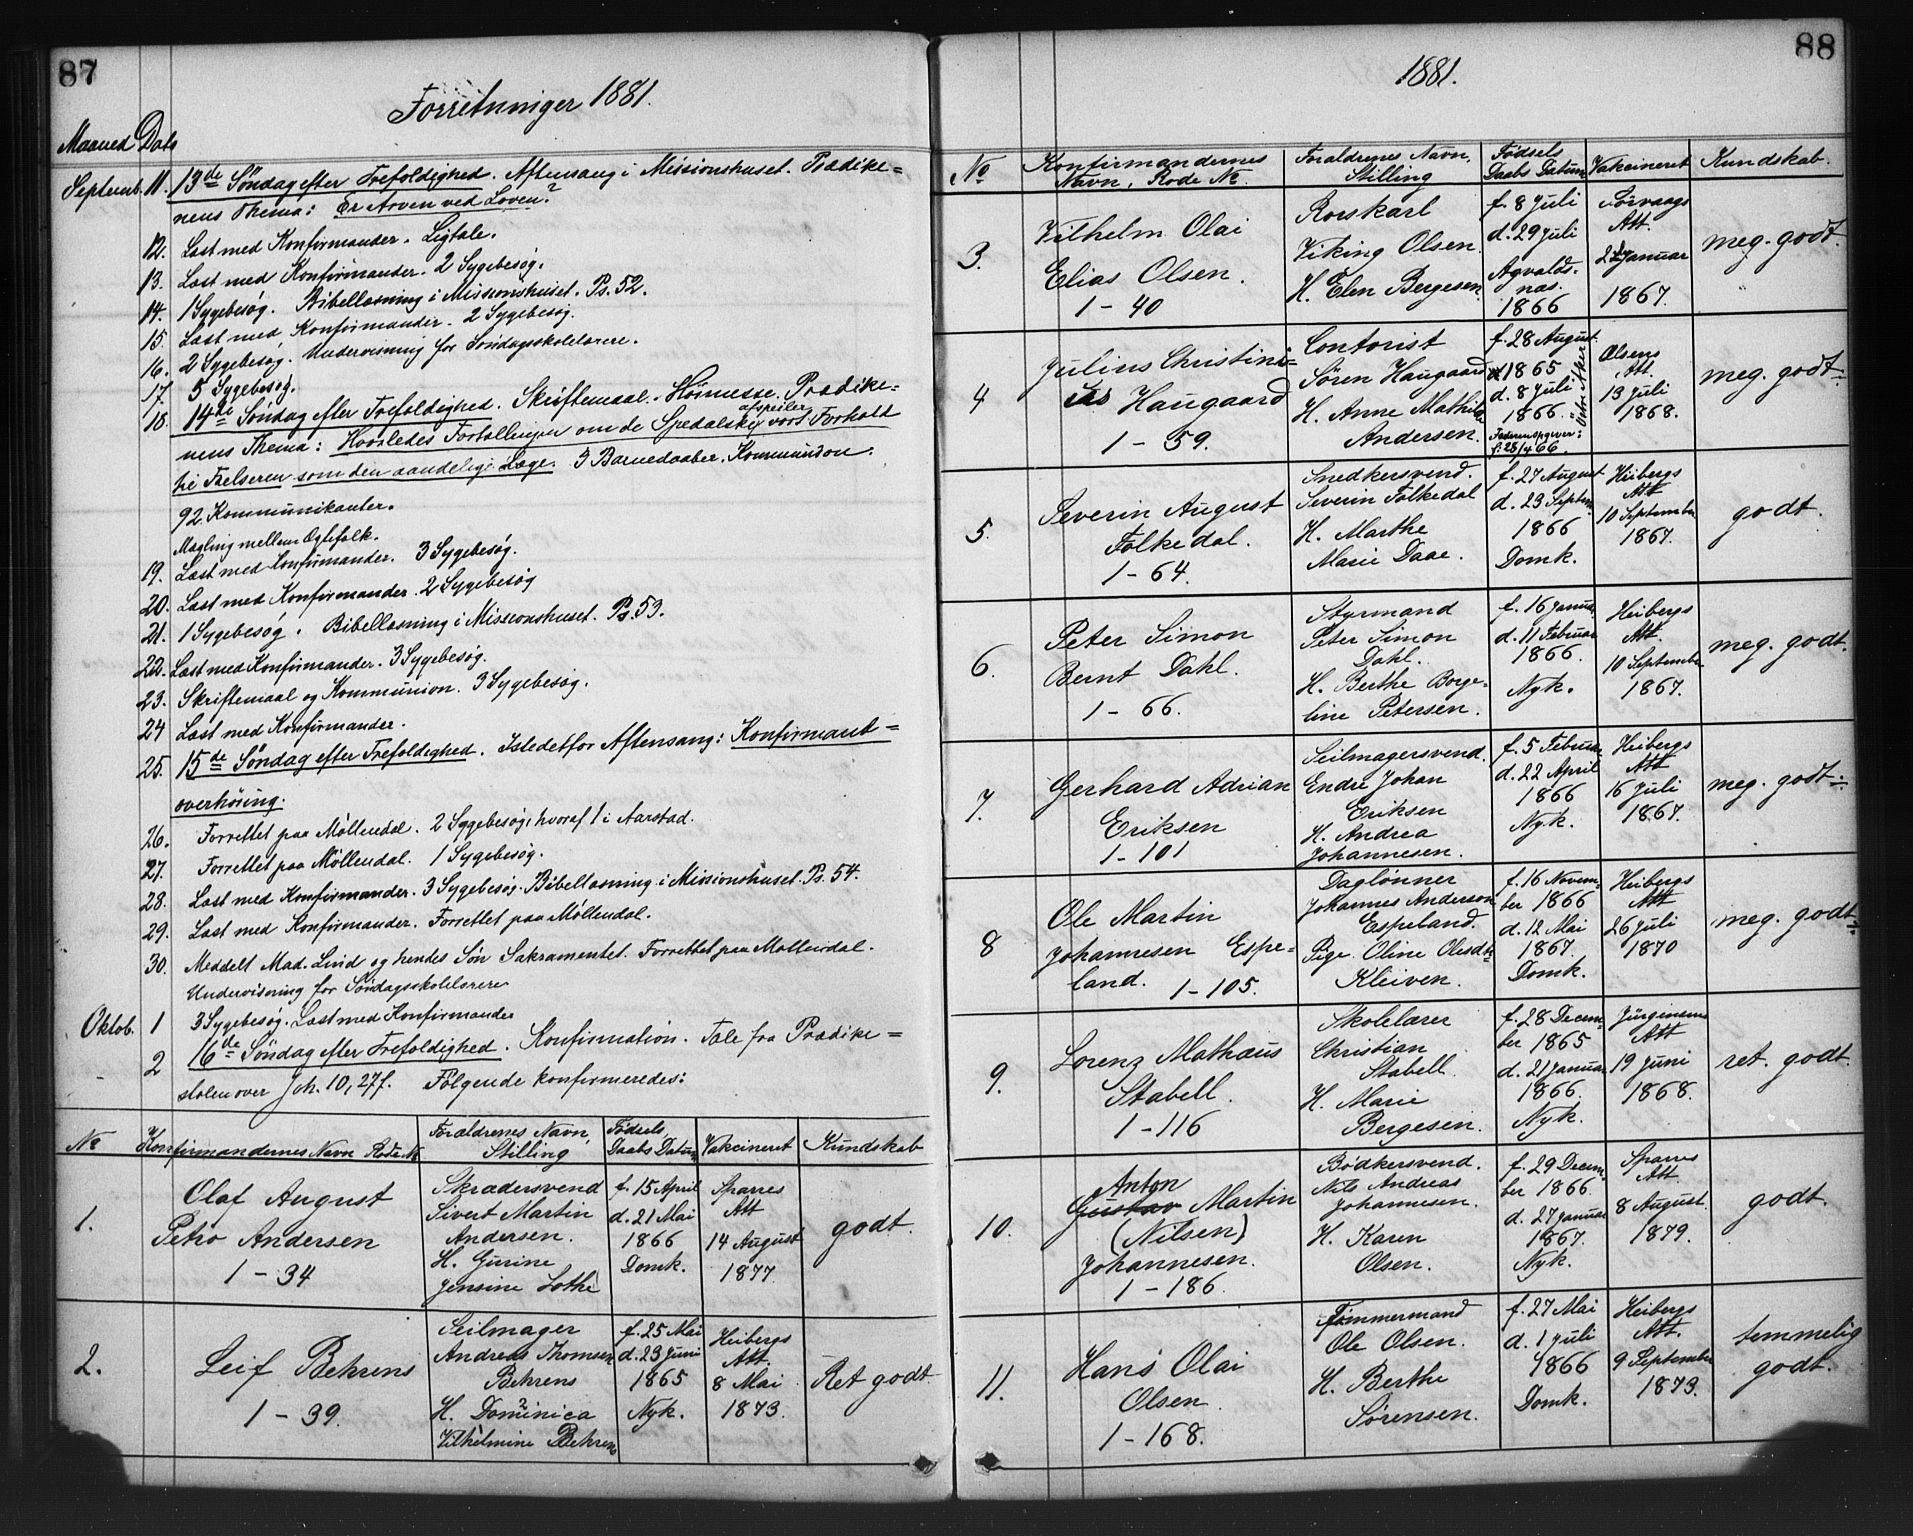 87
Forretninger 1881.
Maaned Dato
Septemb. 11. 13de Søndag efter Trefoldighed. Aftensang i Missionshuset. Prædike=
nens Thema: Er Arven ved Loven?
12. Læst med Konfirmander. Ligtale.
13. Læst med Konfirmander. 2 Sygebesøg.
14. 1 Sygebesøg. Bibellæsning i Missionshuset. Ps. 52.
15. Læst med Konfirmander. 2 Sygebesøg.
16. 2 Sygebesøg. Undervisning for Søndagsskolelærere.
17. 5 Sygebesøg.
18. 14de Søndag efter Trefoldighed. Skriftemaal. Høimesse. Prædike=
nens Thema: Hvorledes Fortællingen om de Spedalske afspeiler vort Forhold
til Frelseren som den aandelige Læge. 3 Barnedaaber. Kommunion.
92 Kommunikanter.
Mægling mellem Ægtefolk.
19. Læst med Konfirmander. 3 Sygebesøg.
20. Læst med Konfirmander. 2 Sygebesøg
21. 1 Sygebesøg. Bibellæsning i Missionshuset. Ps. 53.
22. Læst med Konfirmander. 3 Sygebesøg.
23. Skriftemaal og Kommunion. 3 Sygebesøg.
24 Læst med Konfirmander.
25. 15de Søndag efter Trefoldighed. Istedetfor Aftensang: Konfirmant=
overhøring.
26. Forrettet paa Møllendal. 2 Sygebesøg, hvoraf 1 i Aarstad.
27. Forrettet paa Møllendal. 1 Sygebesøg.
28. Læst med Konfirmander. 3 Sygebesøg. Bibellæsning i Missionshuset. Ps. 54.
29. Læst med Konfirmander. Forrettet paa Møllendal.
30. Meddelt Mad. Lind og hendes Søn Sakramentet. Forrettet paa Møllendal.
Undervisning for Søndagsskolelærere
Oktob. 1 3 Sygebesøg. Læst med Konfirmander
- 2 16de Søndag efter Trefoldighed. Konfirmation. Tale fra Prædike=
stolen over Joh. 10, 27f. Følgende konfirmeredes:
No Konfirmandernes Navn Rode No Forældrenes Navn, Stilling Fødsels Daabs Datum Vakcineret Kundskab
1. Olaf August
Petro Andersen
1 - 34
Skrædersvend
Sivert Martin
Andersen.
H. Gurine
Jensine Lothe
f. 15 April
d. 21 Mai
1866
Domk.
Sparres
Att
14 August
1877
godt.
2. Leif Behrens
1 - 39.
Seilmager
Andreas Thomsen
Behrens
H. Dominica
Vilhelmine Behrens
f. 25 Mai
d. 23 Juni
1865
Nyk.
Heibergs
Att.
8 Mai
1873.
Ret godt
88
1881.
No Konfirmandernes Navn, Rode No. Forældrenes Navn, Stilling Fødsels Daabs Datum Vakcineret Kundskab.
3. Vilhelm Olai
Elias Olsen.
1 - 40
Rorskarl
Viking Olsen.
H. Elen Bergesen
f. 8 Juli
d. 29 Juli
Agvalds-
næs.
1866
Att.
Januar
1867.
meg. godt.
4 Julius Christini=
us Haugaard
1 - 59.
Contorist
Søren Haugaard
H. Anne Mathilde
Andersen.
f. 28 August
1865
d. 8 Juli
1866.
Faderen opgiver:
f. 28/4 66.
Østre Aker
Olsens
Att.
13 Juli
1868.
meg. godt
5. Severin August
Folkedal.
1 - 64.
Snedkersvend.
Severin Folkedal
H. Marthe
Marie Daae.
f. 27 August
d. 23 Septem.
1866
Domk.
Heibergs
Att
10 September
1867.
godt.
6. Peter Simon
Bernt Dahl.
1 - 66.
Styrmand
Peter Simon
Dahl.
H. Berthe Borge-
line Petersen.
f. 16 Januar
d. 11 Februar
1866.
Nyk.
Heibergs
Att.
10 September
1867.
meg. godt.
7. Gerhard Adrian
Eriksen
1 - 101
Seilmagersvend.
Endre Johan
Eriksen
H. Andrea
Johannesen.
f. 5 Februar
d. 22 April
1866
Nyk.
Heibergs
Att
16 Juli
1867.
meg. godt.
8 Ole Martin
Johannesen Espe=
land. 1 - 105.
Daglønner
Johannes Anderson
Espeland.
Pige Oline Olesdtr
Kleiven.
f. 16 Novem-
ber 1866
d. 12 Mai
1867.
Domk.
Heibergs
Att
26 Juli
1870
meg. godt
9. Lorenz Mathæus
Stabell.
1 - 116
Skolelærer
Christian
Stabell.
H. Marie
Bergesen.
f. 28 Decem-
ber 1865
d. 21 Januar
1866.
Nyk.
Jürgensens
Att
19 Juni
1868.
ret. godt.
10. Anton
Gustav Martin
(Nilsen)
Johannesen.
1 - 186.
Bødkersvend.
Nils Andreas
Johannesen.
H. Karen
Olsen.
f. 29 Decem-
ber 1866.
d. 27 Januar
1867.
Nyk.
Sparres
Att
8 August.
1879.
godt.
11. Hans Olai
Olsen.
1 - 168.
Tømmermand
Ole Olsen.
H. Berthe
Sørensen.
f. 27 Mai
d. 1 Juli
1866
Domk.
Heibergs
Att.
9 September
1873.
temmelig
godt.